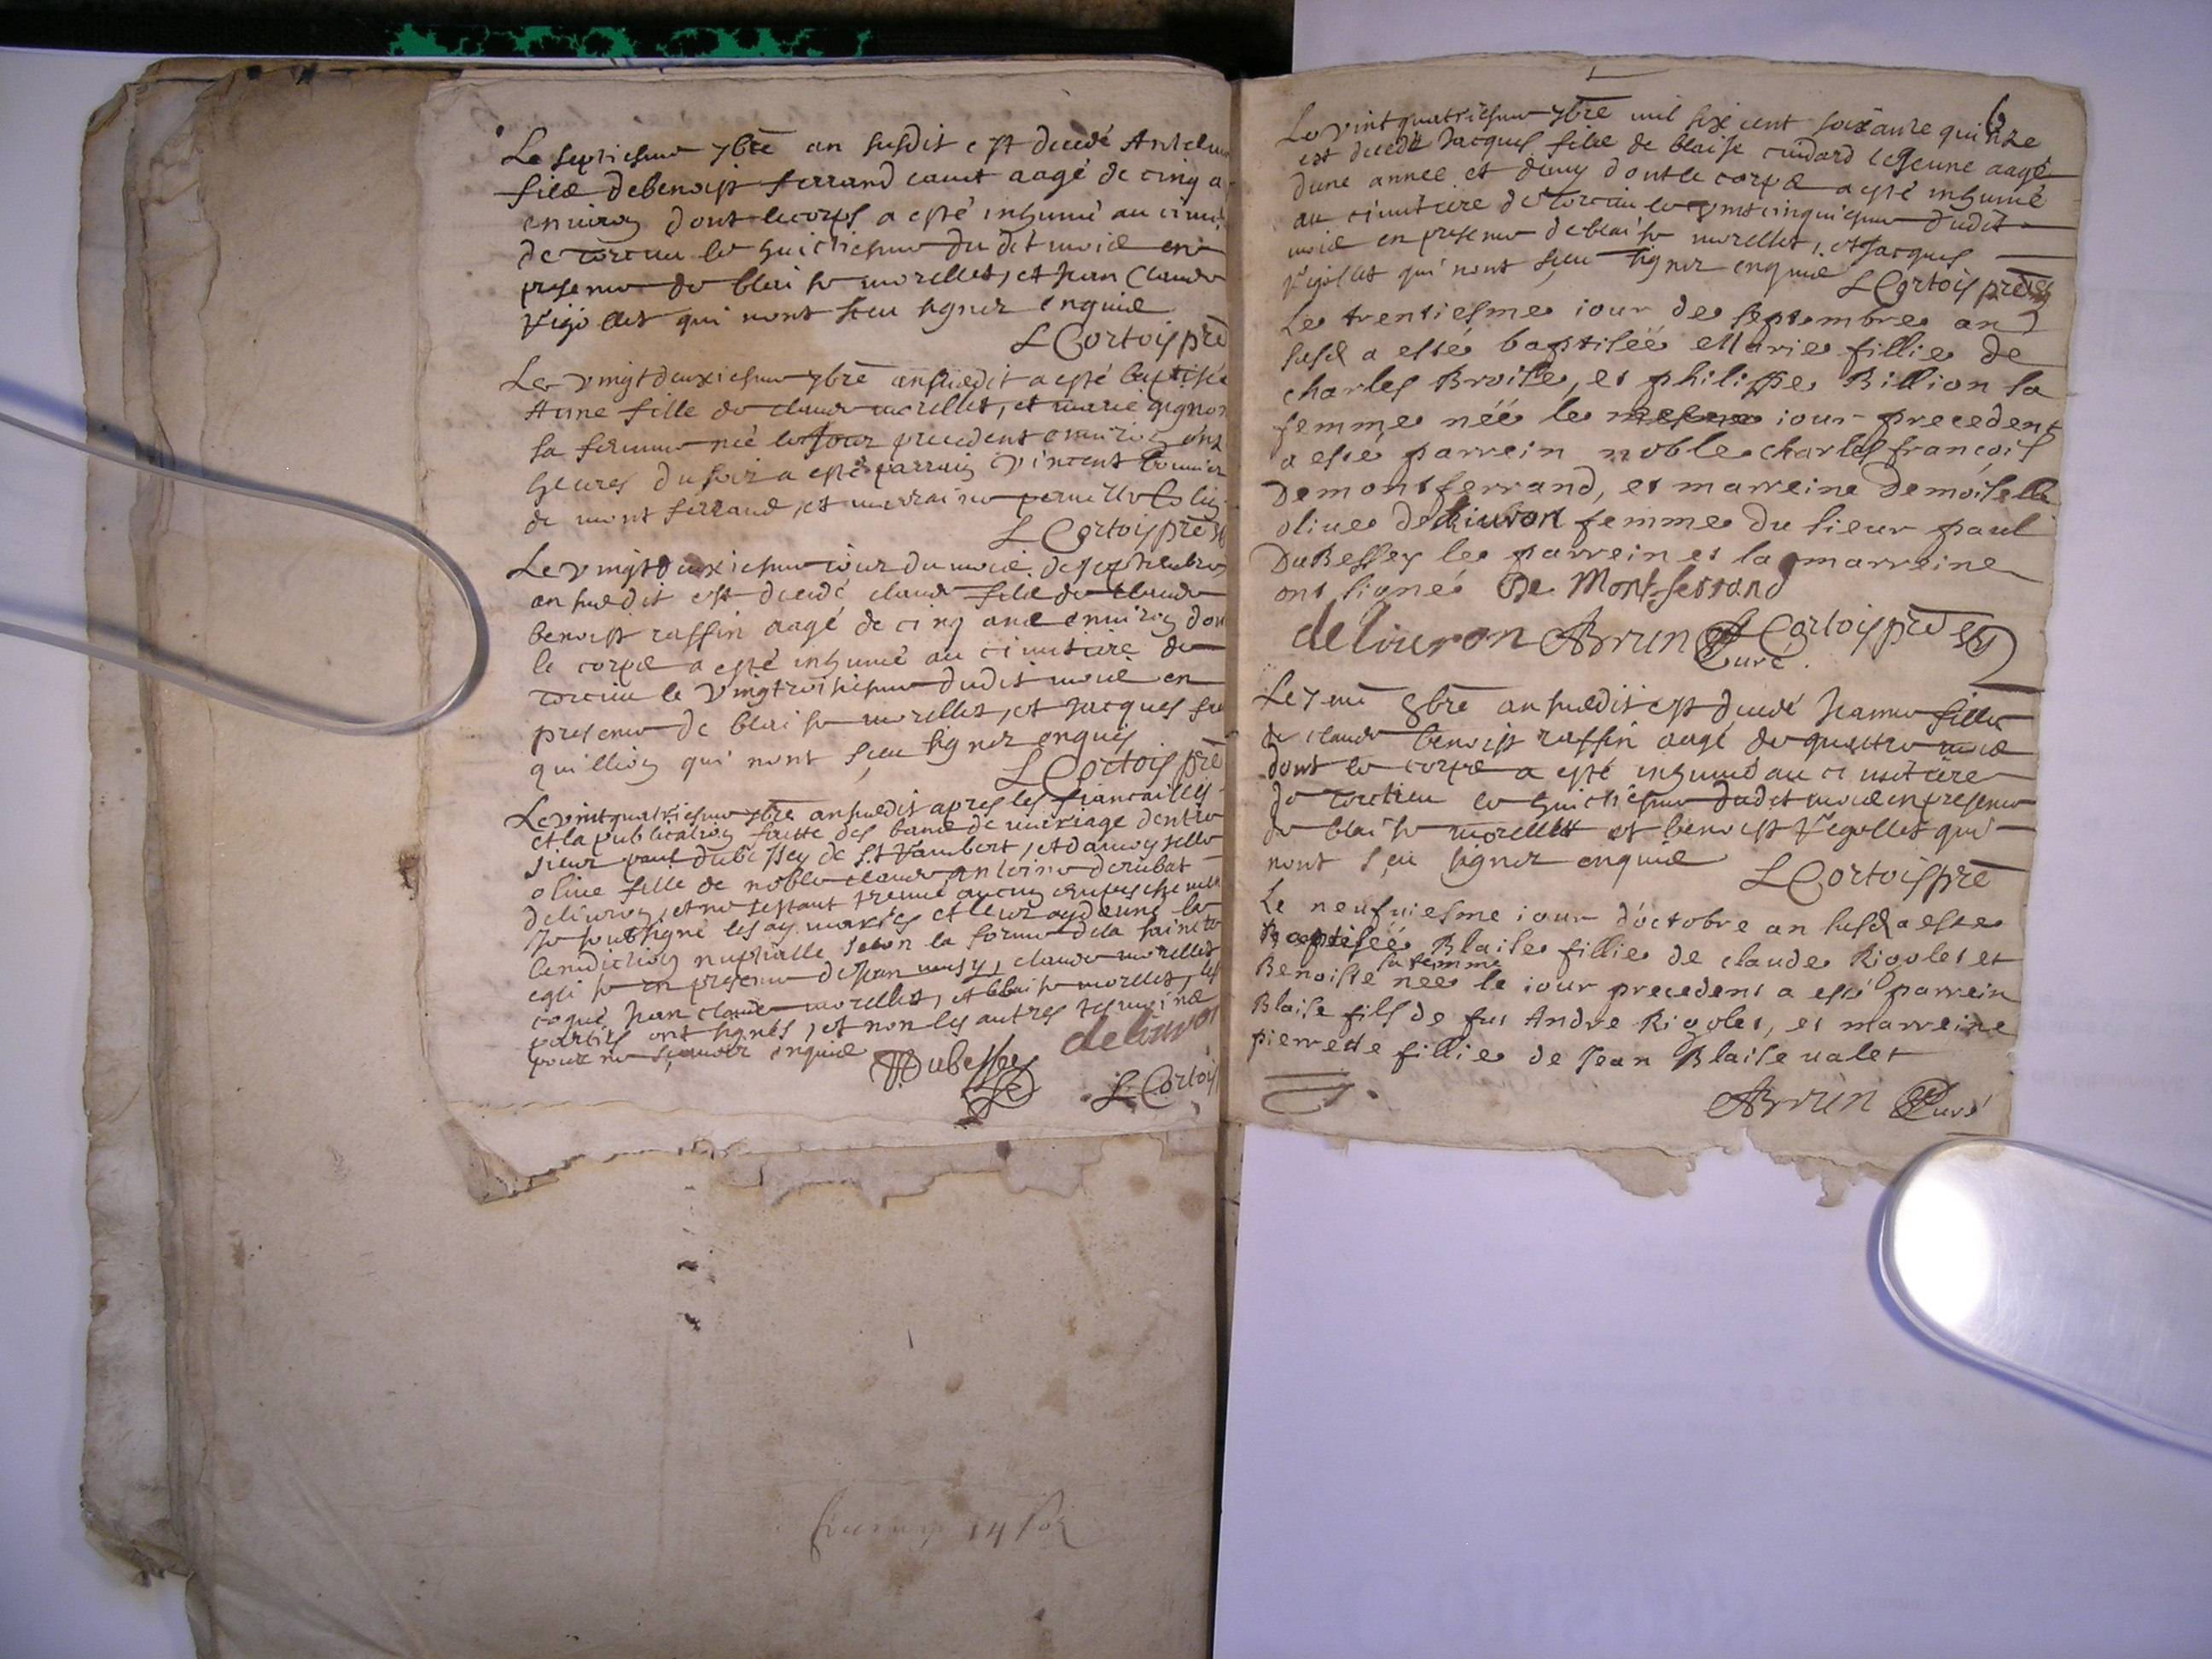 Le septiesme 7bre an susdit est decedé Anthelme
filz de benoist ferrand canet aagé de cinq a
enuiron dont le corps a esté inhumé au cimit
de torcieu le huictiesme du dit mois en
presence de blaise morellet, et Jean Claude
Vigollet qui nont sceu signer enquis
L Cortois pre
Le vingtdeuxiesme 7bre ansusdit a esté baptisée
Anne fille de claude morellet, et marie gignon
sa femme née le jour precedent enuiron onz
heures du soir a esté parrain Vincent bonnier
de mont ferrand, et marraine
L Cortois pre
Le vingtdeuxiesme iour du mois de septembre
an susdit est decedé claude filz de claude
benoist raffin aagé de cinq ans enuiron don
le corps a esté inhumé au cimitiere de
torcieu le vingtroisiesme dudit mois en
presence de blaise morellet, et Jacques
quillion qui nont sceu signer enquis
L Cortois pre
Le vintquatriesme 7bre ansusdit apres les fiancailles
et la publication faitte des bans de mariage dentre
sieur paul dubessey de St Rambert, et damoyselle
oliue fille de noble claude antoine derubat
deliuron, et ne sestant treuué aucun empeschement
Je soubsigné les ay mariés et leur ay donné la
benediction nuptialle selon la forme de la saincte
eglise en presence de Jean musy, claude morellet
coque, Jean claude morellet, et blaise morellet, les
parties ont signés, et non les autres tesmoins
pour ne sçauoir enquis
Dubessey deliuron
L Cortois
6
Le vintquatriesme 7bre mil six cent soixante quinze
est decedé Jacques filz de blaise cuidard le Jeune aagé
dune année et demy dont le corps a esté inhumé
au cimitiere de torcieu le vintcinquiesme dudit
mois en presence de blaise morellet, et Jacques
Vigollet qui nont sceu signer enquis L Cortois pre
Le trentiesme iour de septembre an
susd a esté baptisée Marie fillie de
charles Broise, et philippe Billion sa
femme née le mesme iour precedent
a esté parrein noble charles francois
Demontferrand, et marreine Demoiselle
oliue deliuron femme du sieur paul
DuBessey le parrein et la marreine
ont signé De Montferrand
deliuron ABrun Curé L Cortois pre
Le 7me 8bre ansusdit est decedé Jeanne fille
de claude benoist raffin aagé de quattre mois
dont le corps a esté inhumé au cimitiere
de torcieu le huictiesme dudit mois en presence
de blaise morellet et benoist Vigollet qui
nont sceu signer enquis L Cortois pre
Le neufuiesme iour d'octobre an susd a esté
Baptisée Blaise fillie de claude Rigolet et
Benoiste sa femme née le iour precedent a esté parrein
Blaise fils de fut Andre Rigolet, et marreine
pierrette fillie de Jean Blaise ualet
ABrun Curé